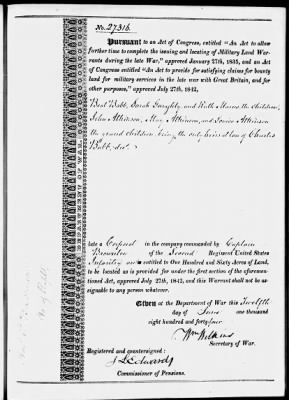 No. 27316
Pursuant to an Act of Congress, entitled "An Act to allow
further time to complete the issuing and locating of Military Land War-
rants during the late War," approved January 27th, 1835, and an Act
of Congress entitled "An Act to provide for satisfying claims for bounty
land for military services in the late war with Great Britain, and for
other purposes," approved July 27th, 1842,
Babb, Sarah and Ruth the children,
John Atkinson, Atkinson, and Atkinson
the grand children, being the only heirs at law of Charles
Babb, dec'd.
late a Corporal in the company commanded by Captain
of the Second Regiment United States
Infantry are entitled to One Hundred and Sixty Acres of Land,
to be located as is provided for under the first section of the aforemen-
tioned Act, approved July 27th, 1842, and this Warrant shall not be as-
signable to any person whatever.
Given at the Department of War this Twelfth
day of June one thousand
eight hundred and forty-four.
Wm Wilkins
Secretary of War.
Registered and countersigned:
J L Edwards
Commissioner of Pensions.
DEPARTMENT OF WAR.